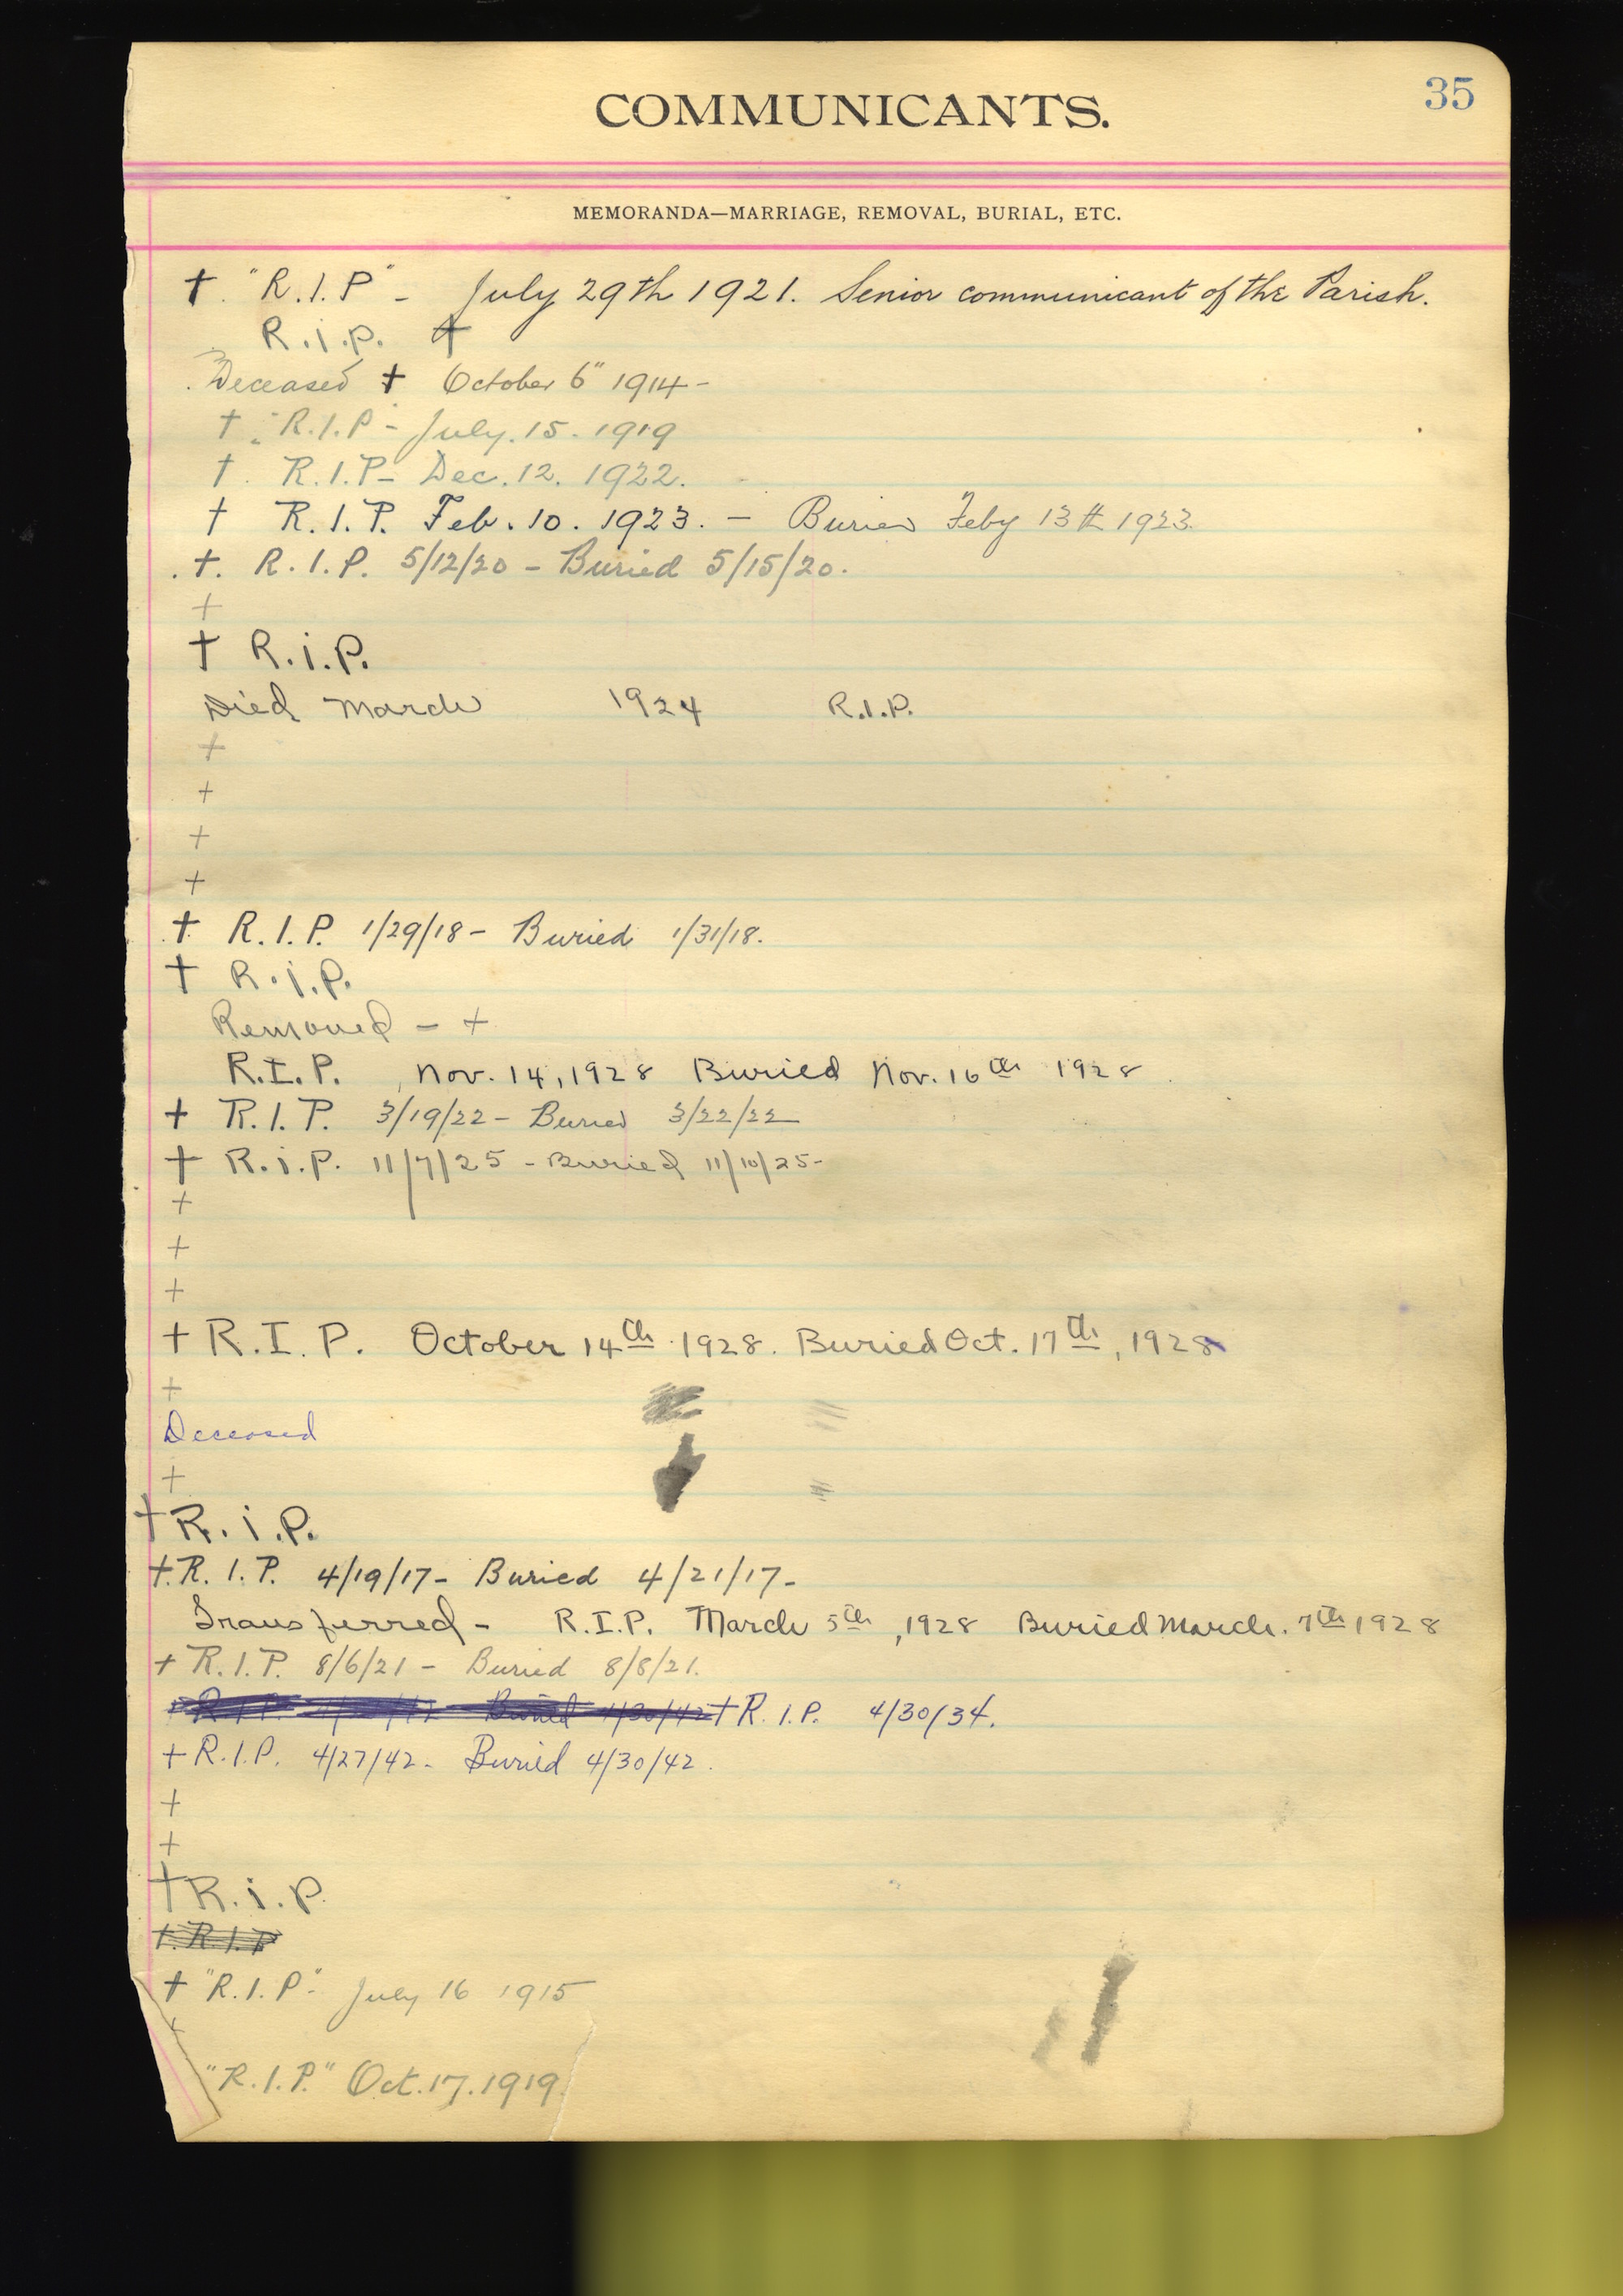 35
COMMUNICANTS.
MEMORANDA—MARRIAGE, REMOVAL, BURIAL, ETC.
† "R.I.P" - July 29th 1921. Senior communicant of the Parish.
R.i.p. †
Deceased † October 6" 1914-
† "R.I.P" - July. 15. 1919
† R.I.P- Dec. 12. 1922.
† R.I.P. Feb. 10. 1923. - Buried Feby 13th 1923.
†. R.I.P. 5/12/20 - Buried 5/15/20.
+
† R.i.P.
Died March 1924 R.I.P.
+
+
+
+
† R.I.P. 1/29/18 - Buried 1/31/18.
† R.i.P.
Removed - +
R.I.P. , Nov. 14, 1928 Buried Nov. 16th 1928.
+ R.I.P. 3/19/22 - Buried 3/22/22
+ R.i.P. 11/7/25 - Buried 11/10/25-
+
+
+
+ R.I.P. October 14th 1928. Buried Oct. 17th, 1928
+
Deceased
+
† R.i.P.
+. R.I.P. 4/19/17- Buried 4/21/17-
Transferred - R.I.P. March 5th, 1928 Buried March. 7th 1928
+ R.I.P. 8/6/21 - Buried 8/8/21.
+ R.I.P. Buried 4/30/42 + R.I.P. 4/30/34.
+ R.I.P. 4/27/42- Buried 4/30/42.
+
+
† R.i.P.
+. R.I.P
† "R.I.P". July 16 1915
+
"R.I.P." Oct. 17. 1919.